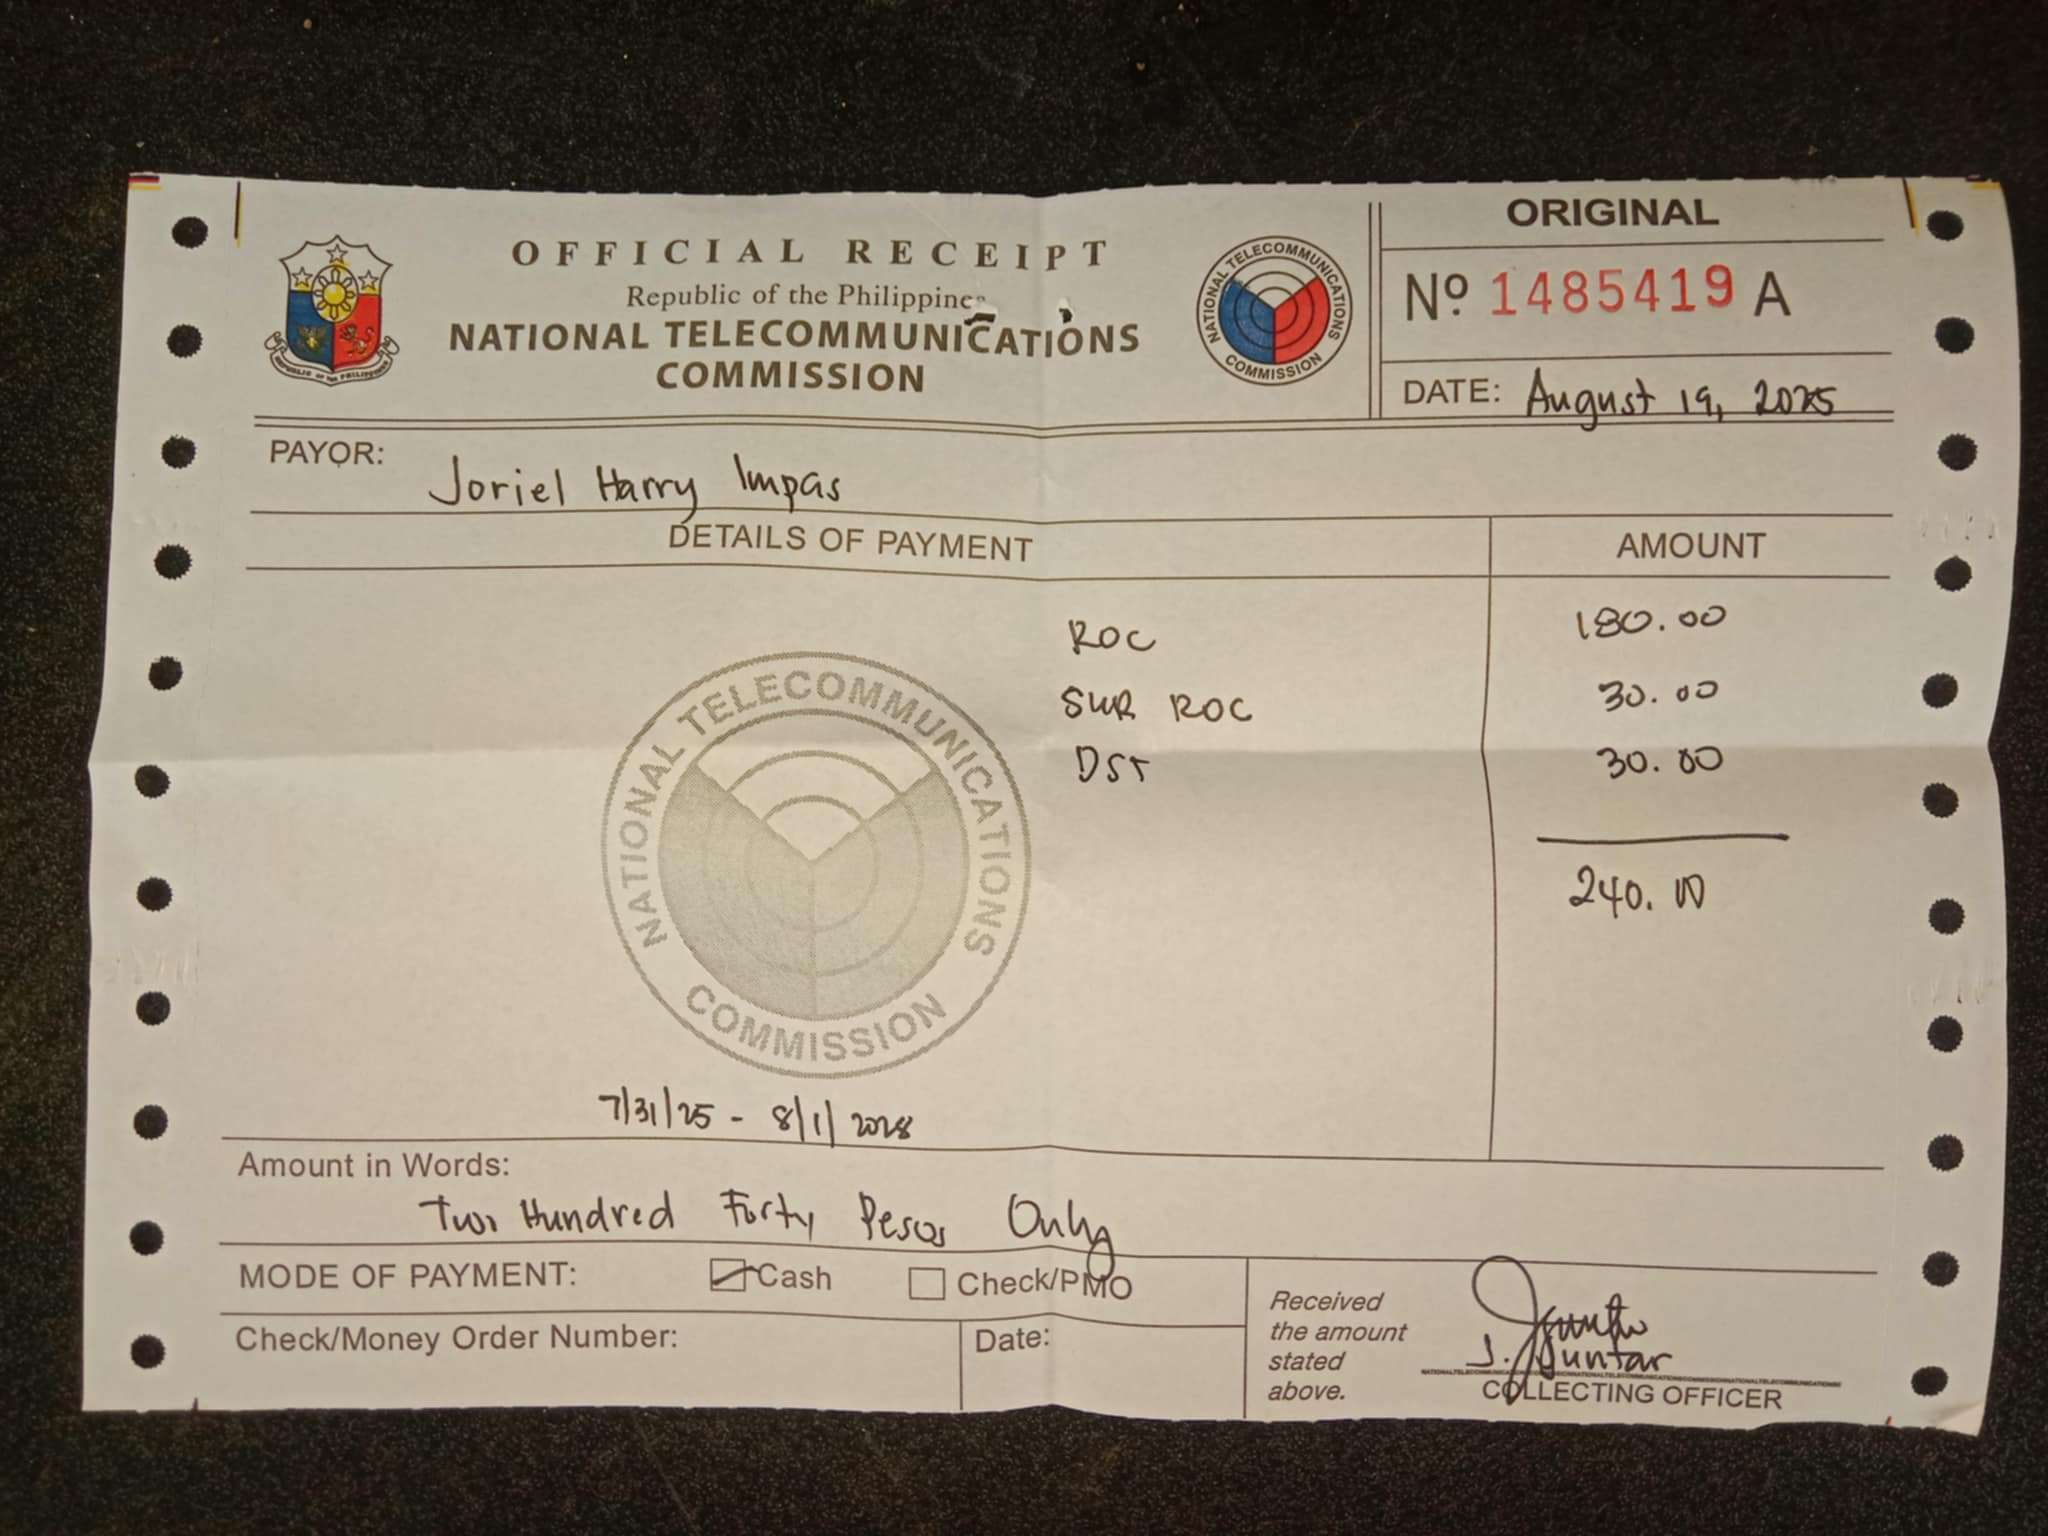 OFFICIAL RECEIPT
Republic of the Philippines
NATIONAL TELECOMMUNICATIONS
COMMISSION
REPUBLIC OF THE PHILIPPINES
NATIONAL TELECOMMUNICATIONS COMMISSION
ORIGINAL
Nº 1485419 A
DATE: August 19, 2025
PAYOR: Joriel Harry Impas
DETAILS OF PAYMENT AMOUNT
ROC 180.00
SUR ROC 30.00
DST 30.00
240.00
NATIONAL TELECOMMUNICATIONS COMMISSION
7/31/25 - 8/1/2028
Amount in Words:
Two Hundred Forty Pesos Only
MODE OF PAYMENT: Cash Check/PMO
Check/Money Order Number: Date:
Received
the amount
stated
above.
COLLECTING OFFICER